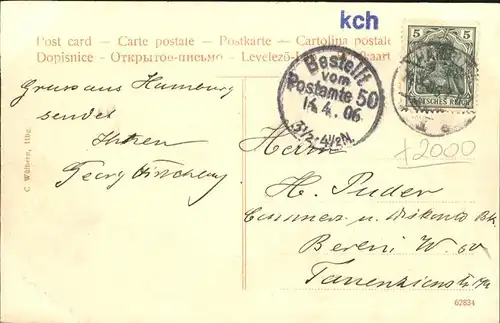 kch
Post card - Carte postale - Postkarte - Cartolina postale
Dopisnice - Открытое-письмо - Levelező-l kaart
5 5
DEUTSCHES REICH
Bestellt
vom
Postamte 50
14.4.06.
3½-4½N.
Gruss aus Hamburg
sendet
Ihnen
Georg
Herrn
H. Puder
Commerz u. Diskonto Bk.
Berlin W. 50
Tauenzienstr.
x2000
C. Wülfern, Hbg.
62834